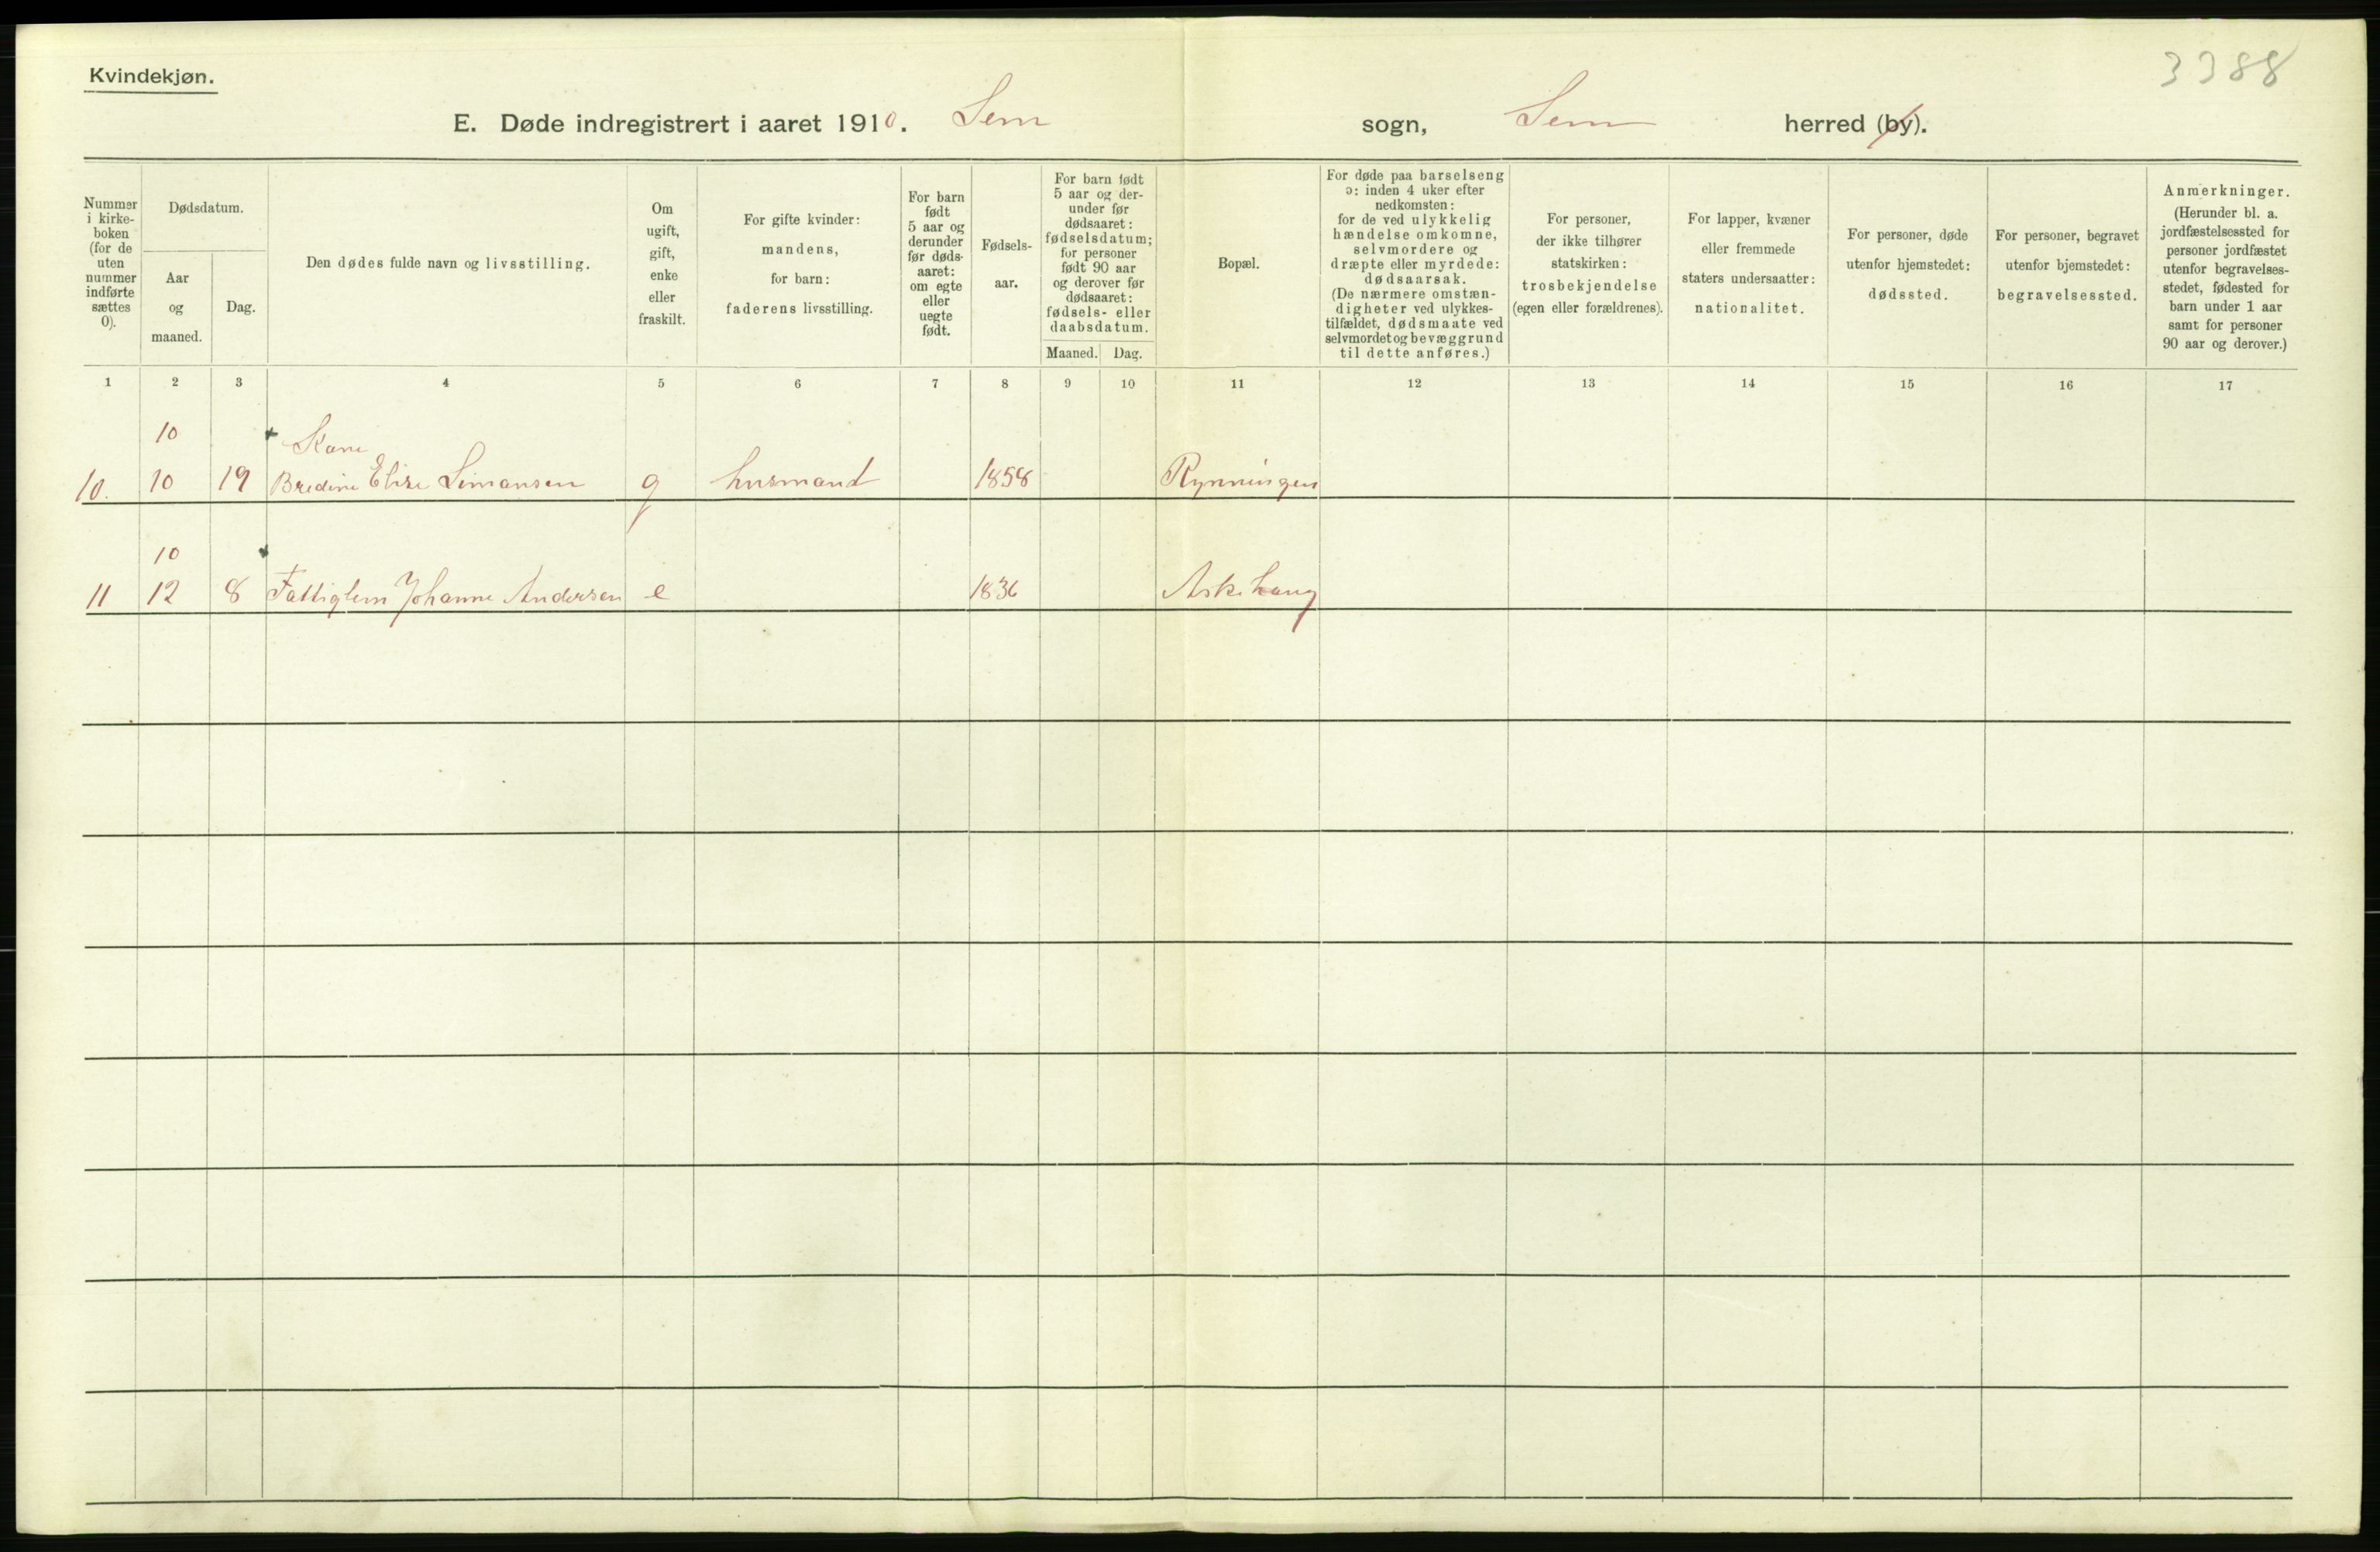 Kvindekjøn.
3388
E. Døde indregistrert i aaret 1910. Sem sogn, Sem herred (by).
Nummer
i kirke-
boken
(for de
uten
nummer
indførte
sættes
0).
Dødsdatum.
Aar
og
maaned.
Dag.
Den dødes fulde navn og livsstilling.
Om
ugift,
gift,
enke
eller
fraskilt.
For gifte kvinder:
mandens,
for barn:
faderens livsstilling.
For barn
født
5 aar og
derunder
før døds-
aaret:
om egte
eller
uegte
født.
Fødsels-
aar.
For barn født
5 aar og der-
under før
dødsaaret:
fødselsdatum;
for personer
født 90 aar
og derover før
dødsaaret:
fødsels- eller
daabsdatum.
Maaned. Dag.
Bopæl.
For døde paa barselseng
ɔ: inden 4 uker efter
nedkomsten:
for de ved ulykkelig
hændelse omkomne,
selvmordere og
dræpte eller myrdede:
dødsaarsak.
(De nærmere omstæn-
digheter ved ulykkes-
tilfældet, dødsmaate ved
selvmordet og bevæggrund
til dette anføres.)
For personer,
der ikke tilhører
statskirken:
trosbekjendelse
(egen eller forældrenes).
For lapper, kvæner
eller fremmede
staters undersaatter:
nationalitet.
For personer, døde
utenfor hjemstedet:
dødssted.
For personer, begravet
utenfor bjemstedet:
begravelsessted.
Anmerkninger.
(Herunder bl. a.
jordfæstelsessted for
personer jordfæstet
utenfor begravelses-
stedet, fødested for
barn under 1 aar
samt for personer
90 aar og derover.)
1 2 3 4 5 6 7 8 9 10 11 12 13 14 15 16 17
10
Kone
10. 10 19 Bredine Elise Simansen g husmand 1858 Rynningen
10
11 12 8 Fattiglem Johanne Andersen e 1836 Askehaug